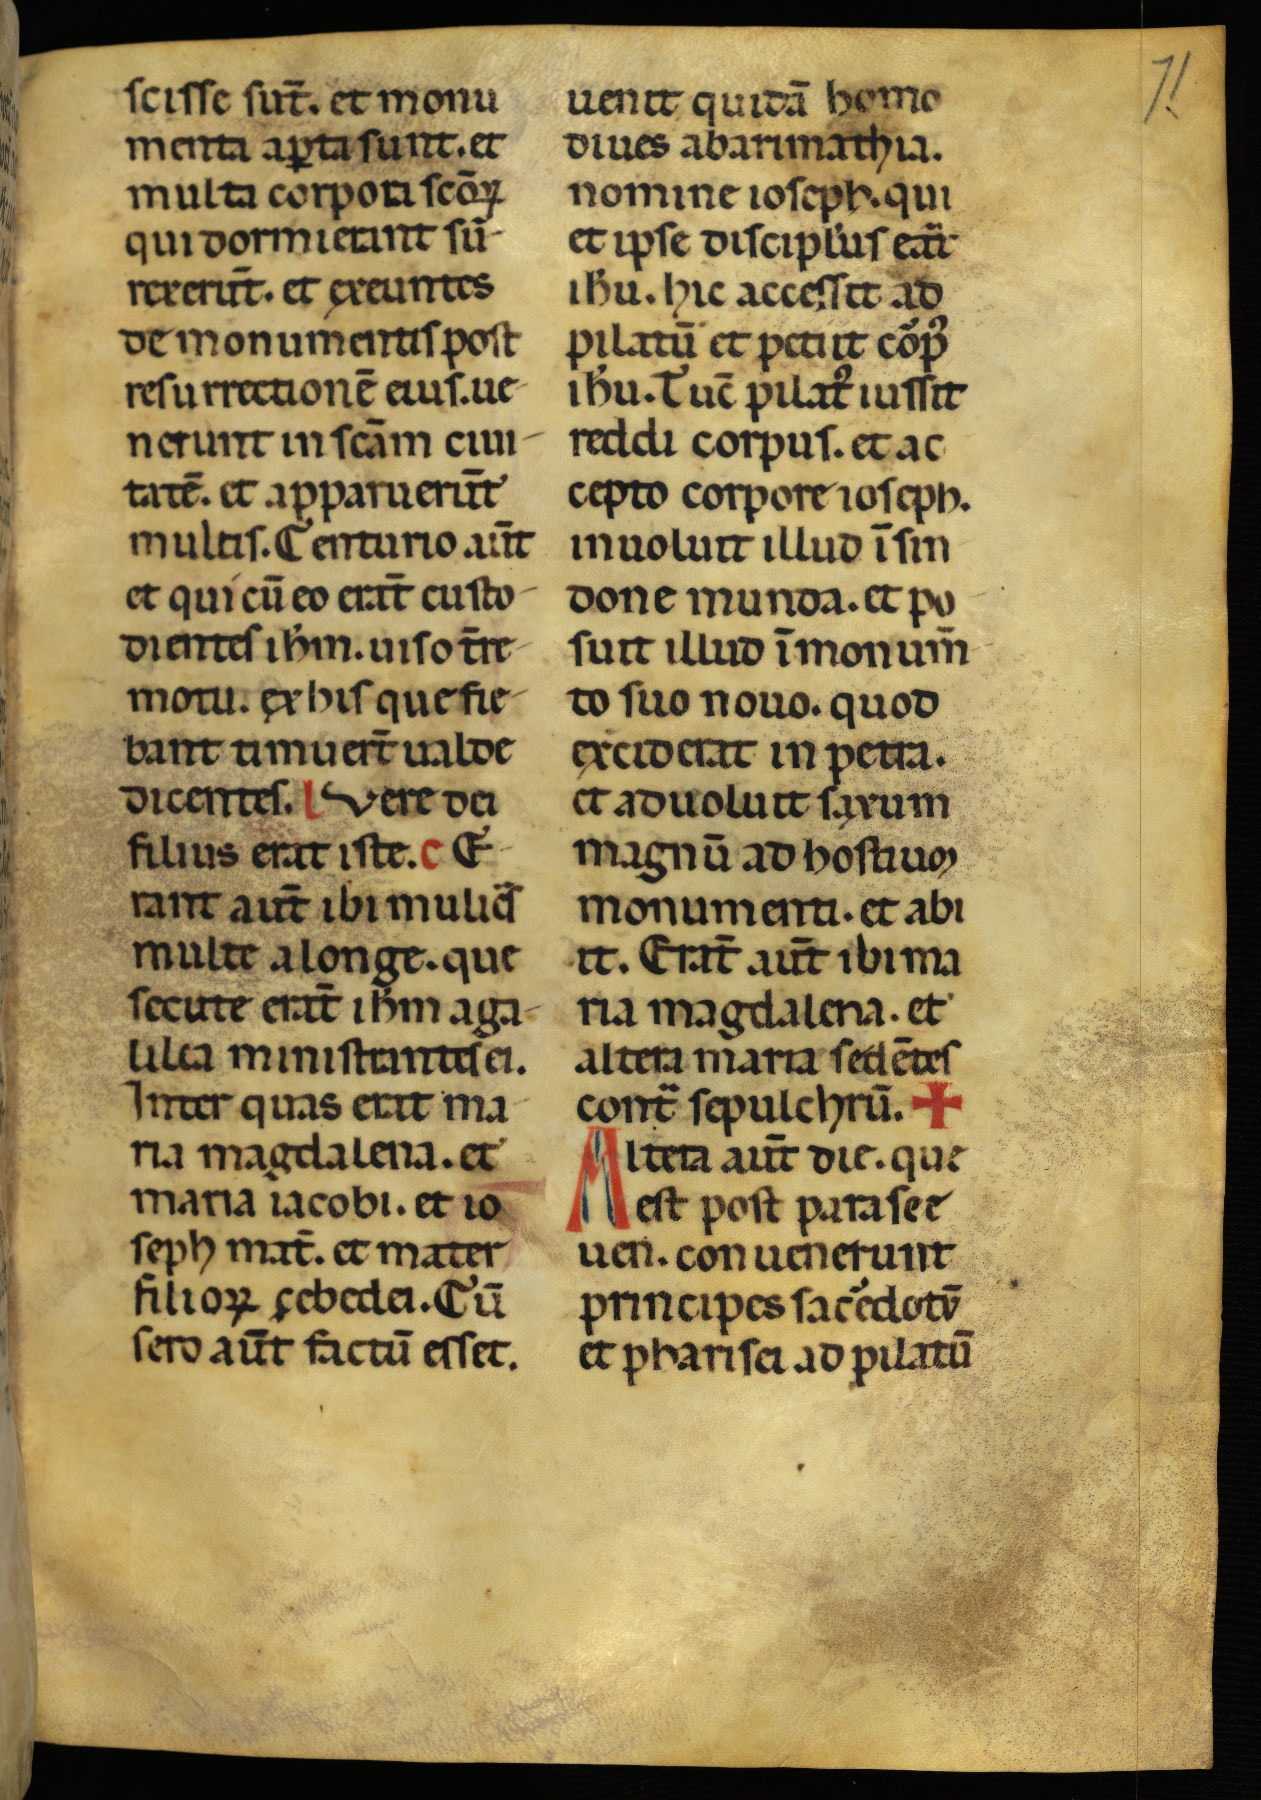 71
scisse sūt. et monu
menta aꝑta sunt. et
multa corpora scōꝝ
qui dormierant sū-
rexerūt. et exeuntes
de monumentis post
resurrectionē eius. ue-
nerunt in scām ciui-
tatē. et apparuerūt
multis. Centurio aūt
et qui cū eo erāt custo-
dientes ihm. uiso t̄re-
motu. ex his que fie-
bant timuer̄t ualde
dicentes. l Vere dei
filius erat iste. c E-
rant aūt ibi mulieˢ
multe a longe. que
secute erāt ihm a ga-
lilea ministrantes ei.
Inter quas erat ma-
ria magdalena. et
maria iacobi. et io
seph mat̄. et mater
filioꝝ çebedei. Cū
sero aūt factū esset.
uenit quidā homo
diues abarimathia.
nomine ioseph. qui
et ipse discipl'us erat
ihu. hic accessit ad
pilatū et petiit corpꝰ
ihu. Tūc pilatꝰ iussit
reddi corpus. et ac
cepto corpore ioseph.
inuoluit illud ī sin
done munda. et po
suit illud ī monum̄
to suo nouo. quod
exciderat in petra.
et aduoluit saxum
magnū ad hostium
monumenti. et abi
it. Erāt aūt ibi ma
ria magdalena. et
altera maria sedētes
contͣ sepulchrū. ✠
Altera aūt die. que
est post parasce
uen. conuenerunt
principes sac̓edotū
et pharisei ad pilatū